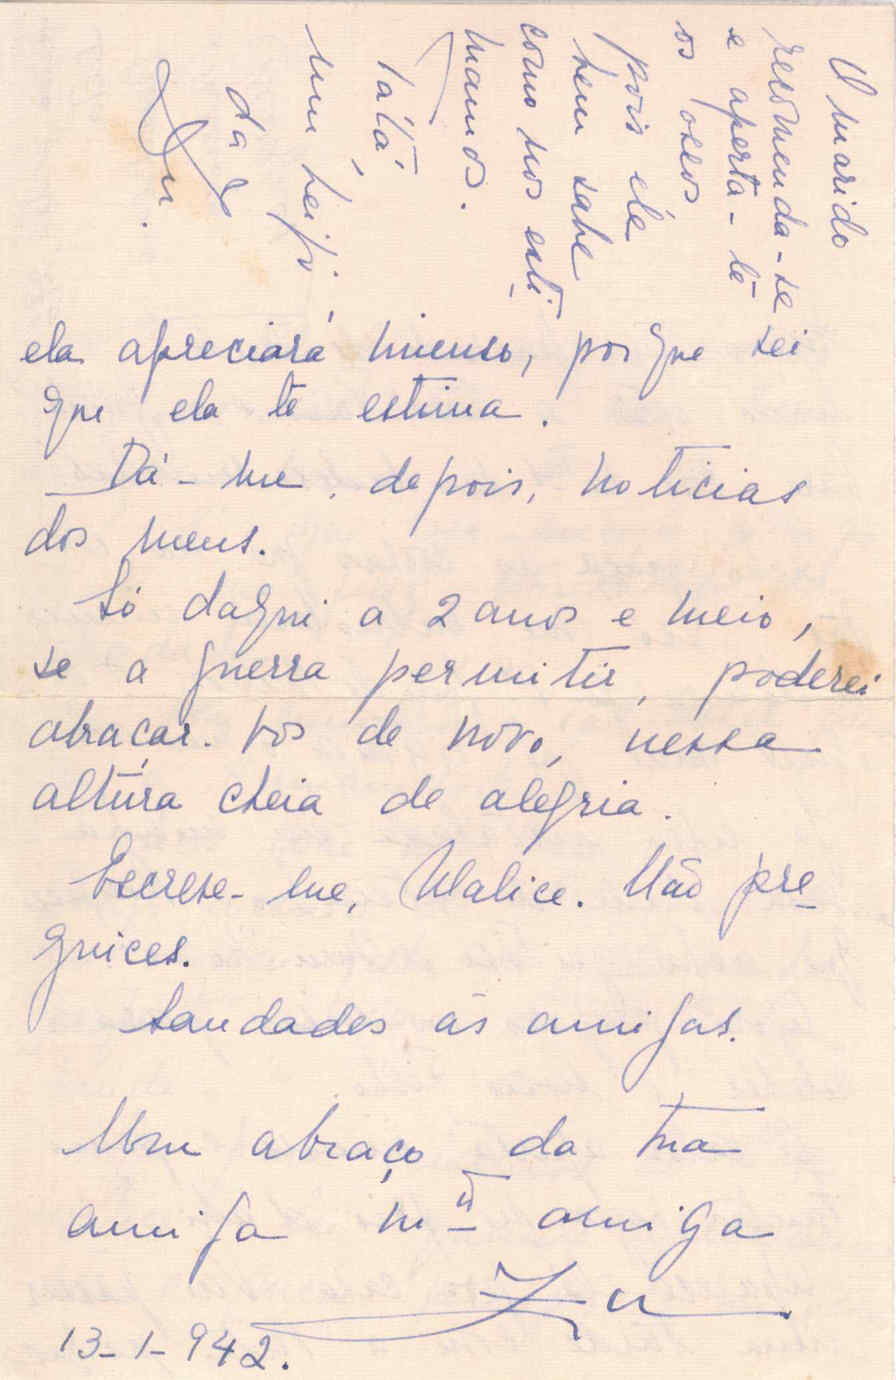 ela apreciará imenso, porque sei
que ela te estima.
Dá-me, depois, noticias
dos meus.
Só daqui a 2 anos e meio,
se a guerra permitir, poderei
abraçar-vos de novo, nessa
altura cheia de alegria.
Escreve-me, Walice. Não pre-
guices.
Saudades ás amigas.
Um abraço da tua
amiga mtº amiga
Zu
13-1-942.
O marido
recomenda-se
e aperta-te
os ossos
pois ele
bem sabe
como nos esti-
mamos.
Tátá,
um beijo
da
Zu.